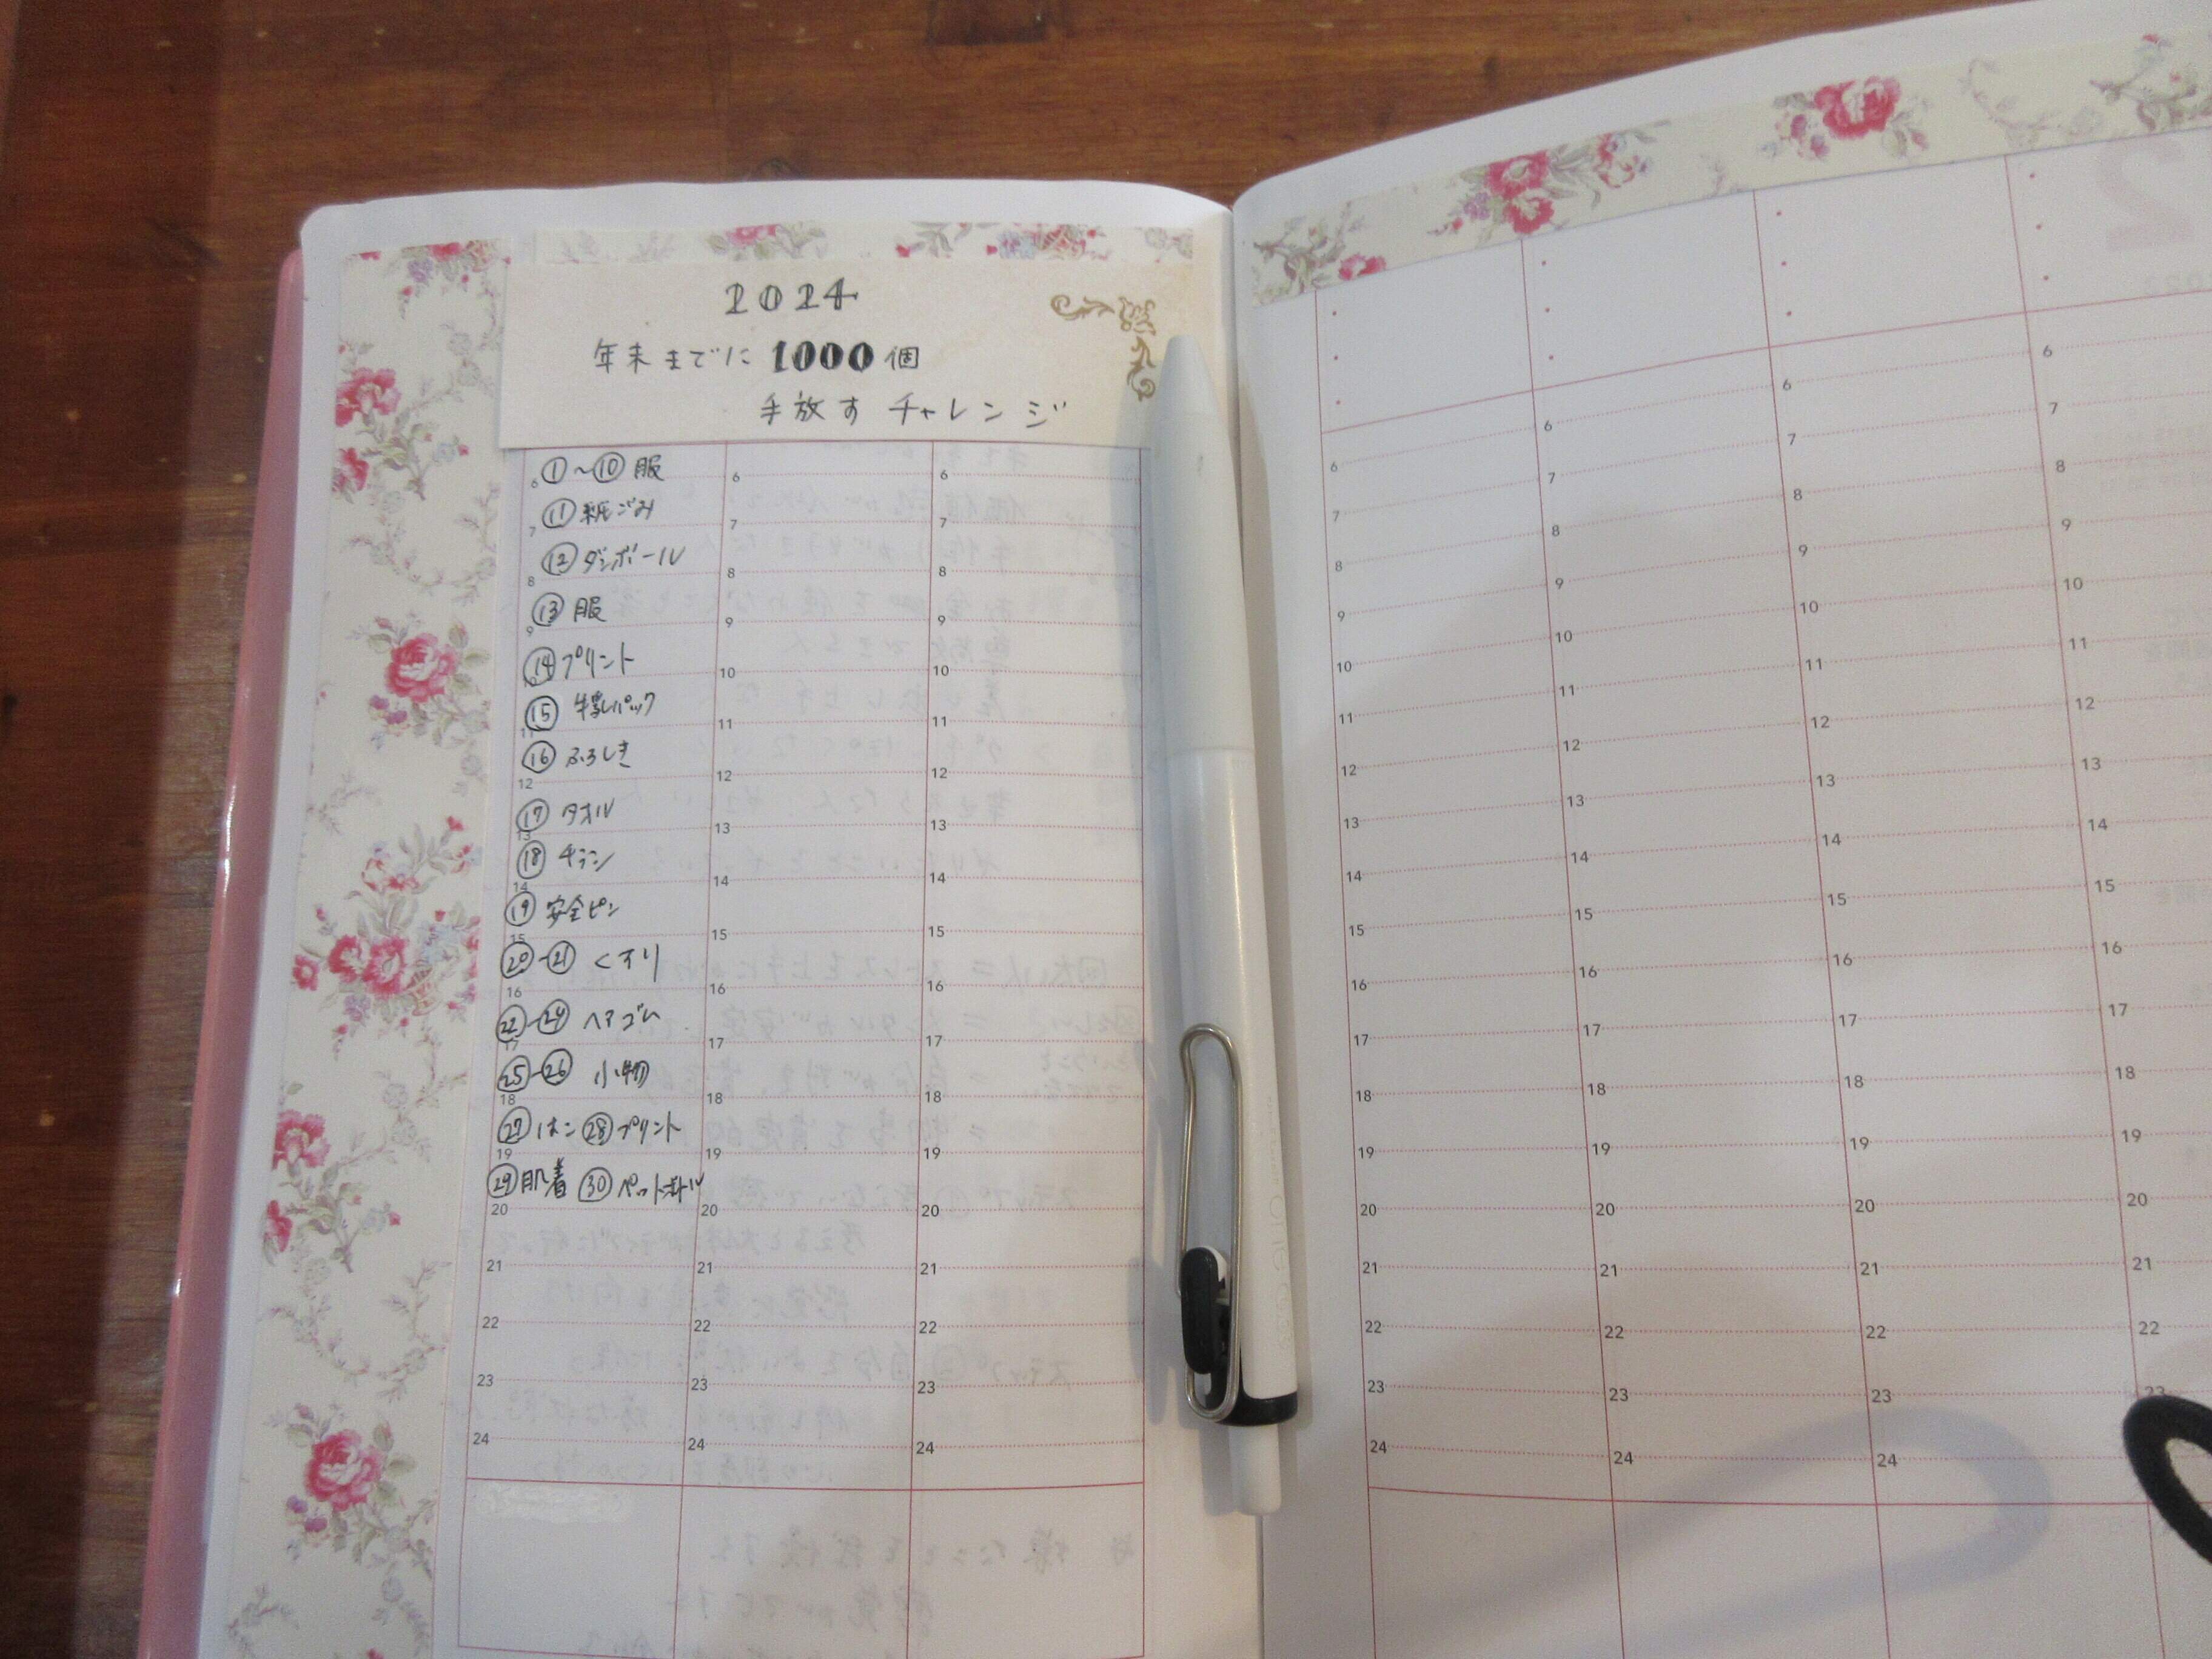 2024
年末までに 1000 個
手放す チャレンジ
①～⑩ 服
⑪ 紙ごみ
⑫ ダンボール
⑬ 服
⑭ プリント
⑮ 牛乳パック
⑯ ふろしき
⑰ タオル
⑱ チラシ
⑲ 安全ピン
⑳-㉑ くすり
㉒-㉔ ヘアゴム
㉕-㉖ 小物
㉗ ㉘ プリント
㉙ 肌着 ㉚ ペットボトル
6 7 8 9 10 11 12 13 14 15 16 17 18 19 20 21 22 23 24
6 7 8 9 10 11 12 13 14 15 16 17 18 19 20 21 22 23 24
6 7 8 9 10 11 12 13 14 15 16 17 18 19 20 21 22 23 24
6 7 8 9 10 11 12 13 14 15 16 17 18 19 20 21 22 23 24
6 7 8 9 10 11 12 13 14 15 16 17 18 19 20 21 22 23 24
6 7 8 9 10 11 12 13 14 15 16 17 18 19 20 21 22 23